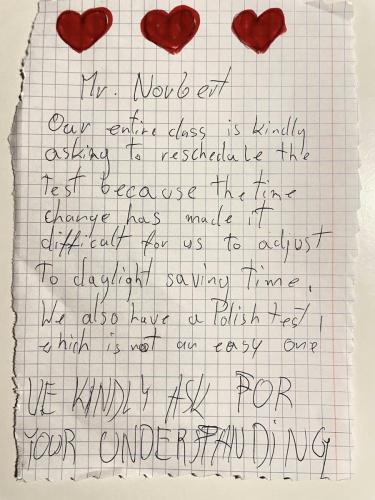 Mr. Norbert
Our entire class is kindly
asking to reschedule the
test because the time
change has made it
difficult for us to adjust
to daylight saving time.
We also have a Polish test,
which is not an easy one
WE KINDLY ASK FOR
YOUR UNDERSTANDING